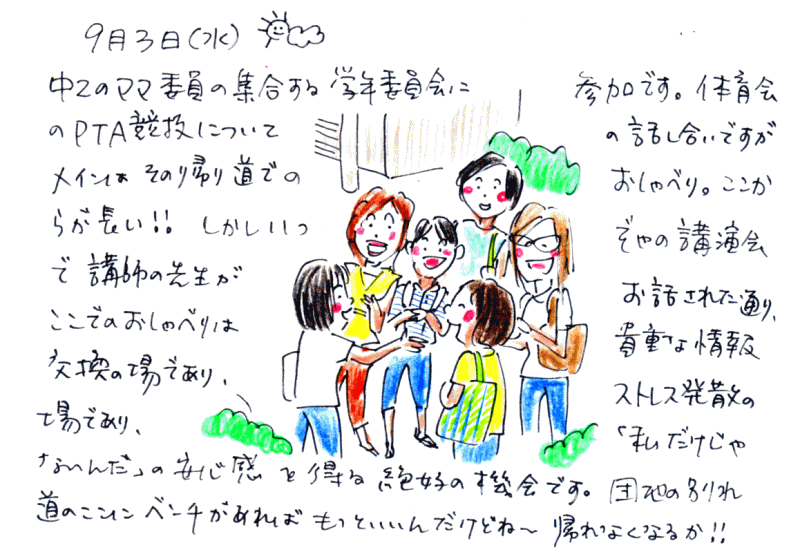 9月3日(水)
中2のママ委員の集合する学年委員会に 参加です。体育会
のPTA競技について の話し合いですが
メインは その帰り道での おしゃべり。ここか
らが長い!! しかしいつ ぞやの講演会
で講師の先生が お話された通り、
ここでのおしゃべりは 貴重な情報
交換の場であり、 ストレス発散の
場であり、 「私だけじゃ
ないんだ」の安心感を得る絶好の機会です。団地の別れ
道のここにベンチがあればもっといいんだけどね〜 帰れなくなるか!!